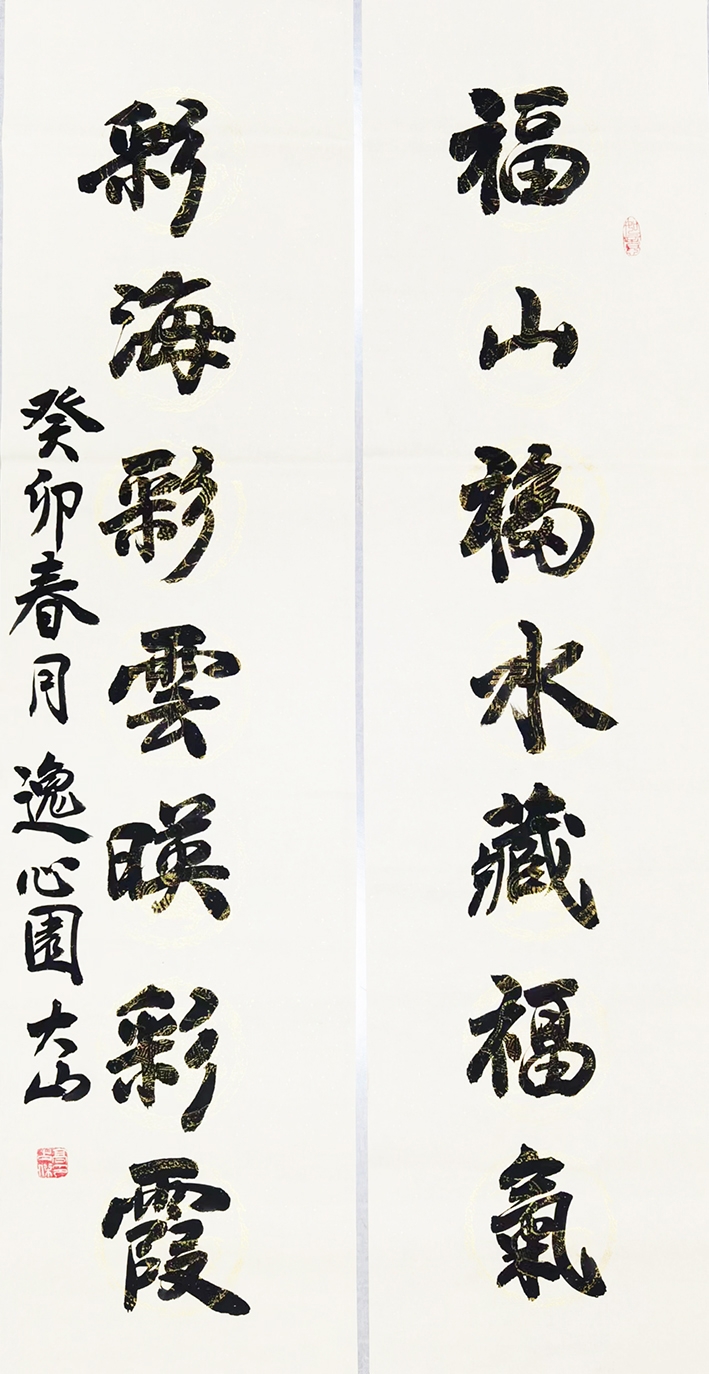 福山福水藏福氣
彩海彩雲暎彩霞
癸卯春月逸心園大山